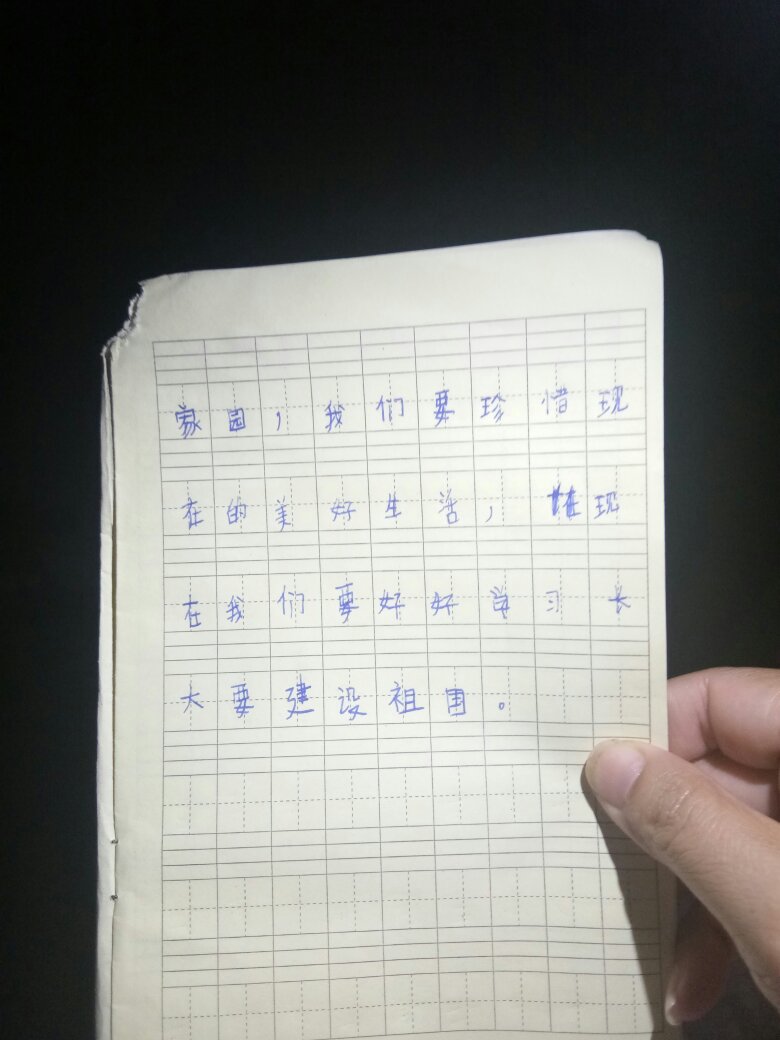 家园，我们要珍惜现
在的美好生活，在现
在我们要好好学习长
大要建设祖国。